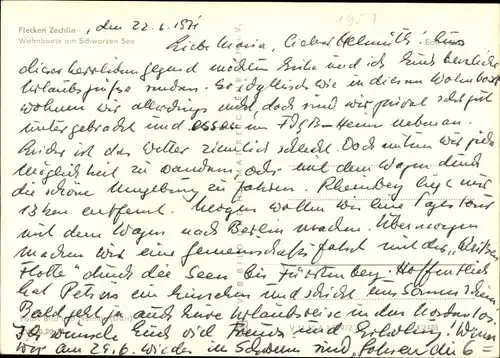 Flecken Zechlin
Wohnboote am Schwarzen See
, den 22.6.1971
1957
Liebe Maria, lieber Helmuth! Aus
dieser herrlichen Gegend möchten und ich Euch herzliche
Urlaubsgrüße senden. So idyllisch wie in diesem Wohnboot
wohnen wir allerdings nicht, doch sind wir privat sehr gut
untergebracht und essen im FDGB-Heim nebenan.
Leider ist das Wetter ziemlich schlecht. Doch nutzen wir jede
Möglichkeit zu wandern, oder mit dem Wagen durch
die schöne Umgebung zu fahren. Rheinsberg liegt nur
13 km entfernt. Morgen wollen wir eine Tagestour
mit dem Wagen nach Berlin machen. Übermorgen
machen wir eine Gemeinschaftsfahrt mit der „Weißen
Flotte" durch die Seen bis Fürstenberg. Hoffentlich
hat Petrus ein Einsehen und schickt uns Sonnenschein
Bald geht ja auch Eure Urlaubsreise in den los.
Ich wünsche Euch viel Freude und Erholung! Wenn
wir am 29.6. wieder in Schwerin sind, fahren die 6